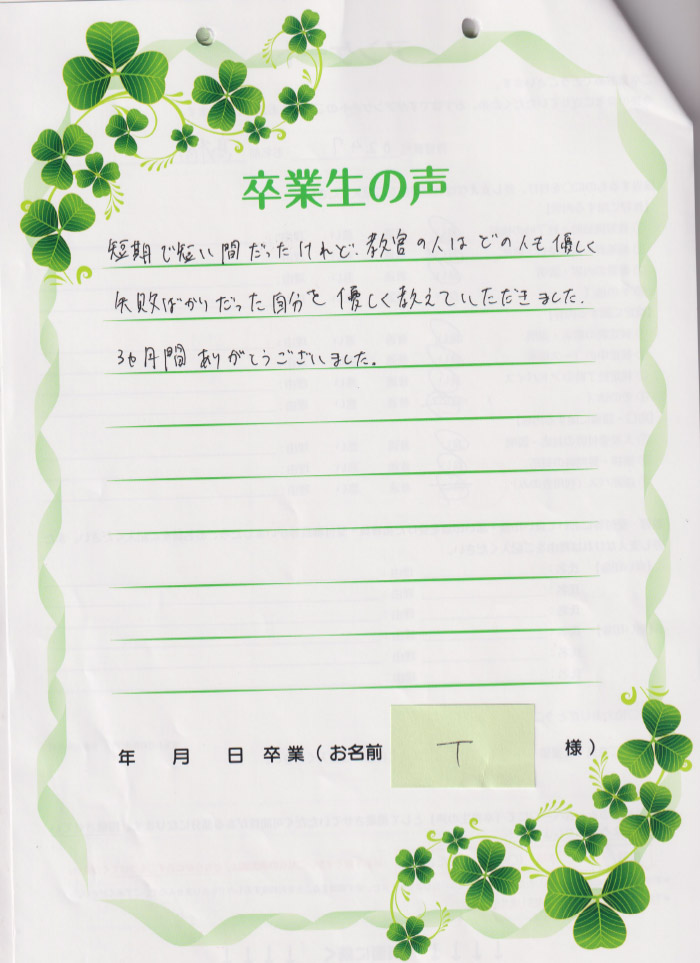 卒業生の声
短期で短い間だったけれど、教官の人はどの人も優しく
失敗ばかりだった自分を優しく教えていただきました.
3ヵ月間ありがとうございました。
年 月 日 卒業(お名前 T 様)